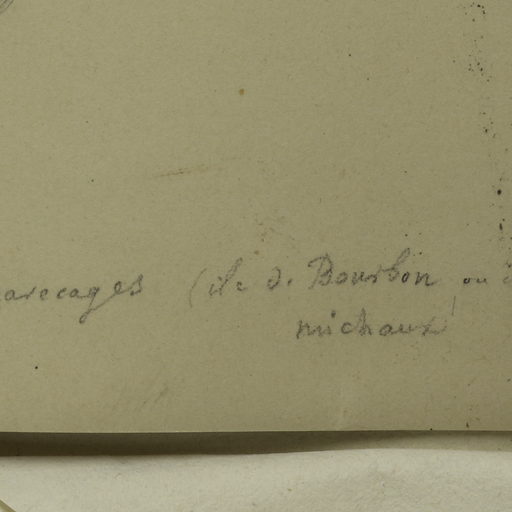 arecages (ile de Bourbon, ou
michaux